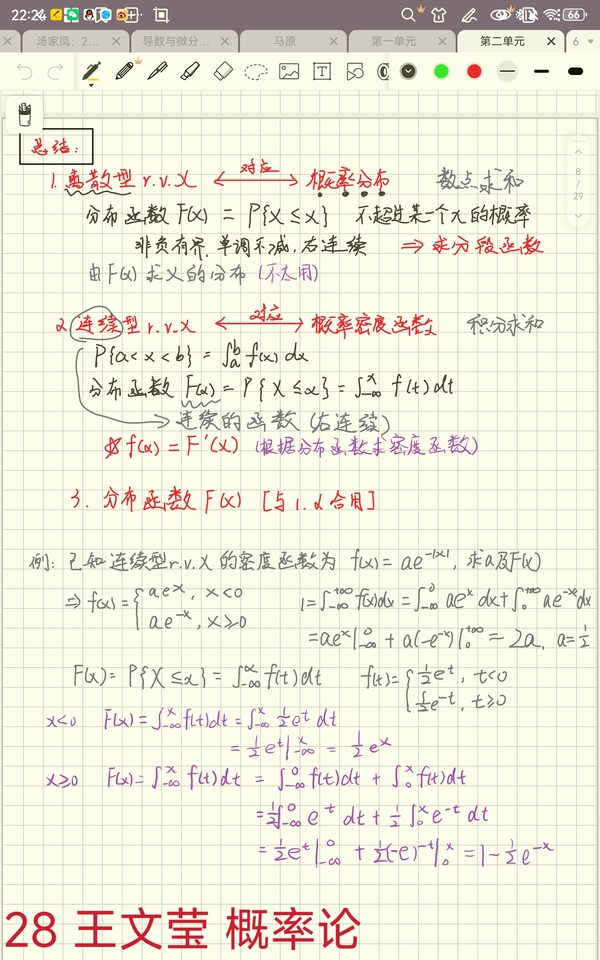 22:24
66
汤家凤：2...
导数与微分...
马原
第一单元
第二单元
6
8
/
29
总结：
1. 离散型 r.v.X ⟷ 对应 概率分布 数点求和
分布函数 F(x) = P{X≤x} 不超过某一个x的概率
非负有界,单调不减,右连续 ⇒ 求分段函数
由F(x)求X的分布 (不太用)
2. 连续型 r.v.X ⟷ 对应 概率密度函数 积分求和
P{a<x<b} = ∫_a^b f(x)dx
分布函数 F(x) = P{X≤x} = ∫_{-∞}^x f(t)dt
连续的函数 (右连续)
☆ f(x) = F'(x) (根据分布函数求密度函数)
3. 分布函数 F(x) [与1.2合用]
例: 已知连续型r.v.X的密度函数为 f(x)=ae^{-|x|}, 求a及F(x)
⇒ f(x)={ae^x, x<0 1=∫_{-∞}^{+∞}f(x)dx=∫_{-∞}^0 ae^x dx+∫_0^{+∞}ae^{-x}dx
ae^{-x}, x≥0 =ae^x|_{-∞}^0 + a(-e^{-x})|_0^{+∞} = 2a, a=1/2
F(x)=P{X≤x}=∫_{-∞}^x f(t)dt f(t)={1/2 e^t, t<0
1/2 e^{-t}, t≥0
x<0 F(x)=∫_{-∞}^x f(t)dt=∫_{-∞}^x 1/2 e^t dt
= 1/2 e^t|_{-∞}^x = 1/2 e^x
x≥0 F(x)=∫_{-∞}^x f(t)dt = ∫_{-∞}^0 f(t)dt + ∫_0^x f(t)dt
=1/2∫_{-∞}^0 e^t dt + 1/2∫_0^x e^{-t}dt
= 1/2 e^t|_{-∞}^0 + 1/2(-e)^{-t}|_0^x = 1-1/2 e^{-x}
28 王文莹 概率论